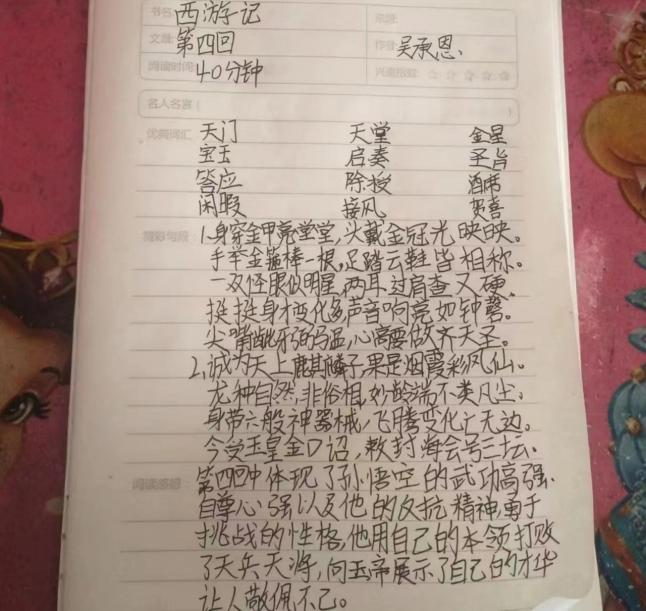 书名: 西游记
文章: 第四回 作者: 吴承恩.
阅读时间: 40分钟 兴趣指数: ☆☆☆☆☆
名人名言( )
优美词汇 天门 天堂 金星
宝玉 启奏 圣旨
答应 除授 酒席
闲暇 接风 贺喜
精彩句段: 1.身穿金甲亮堂堂,头戴金冠光映映。
手举金箍棒一根,足踏云鞋皆相称。
一双怪眼似明星,两耳过肩查又硬。
挺挺身才变化多,声音响亮如钟磬。
尖嘴龇牙弼马温,心高要做齐天圣。
2,诚为天上麒麟子,果是烟霞彩凤仙。
龙种自然非俗相,妙龄端不类凡尘。
身带六般神器械,飞腾变化广无边。
今受玉皇金口诏,敕封海会号三坛.
阅读感想: 第四回中体现了孙悟空的武功高强.
自尊心强以及他的反抗精神,勇于
挑战的性格,他用自己的本领打败
了天兵天将,向玉帝展示了自己的才华
让人敬佩不已。